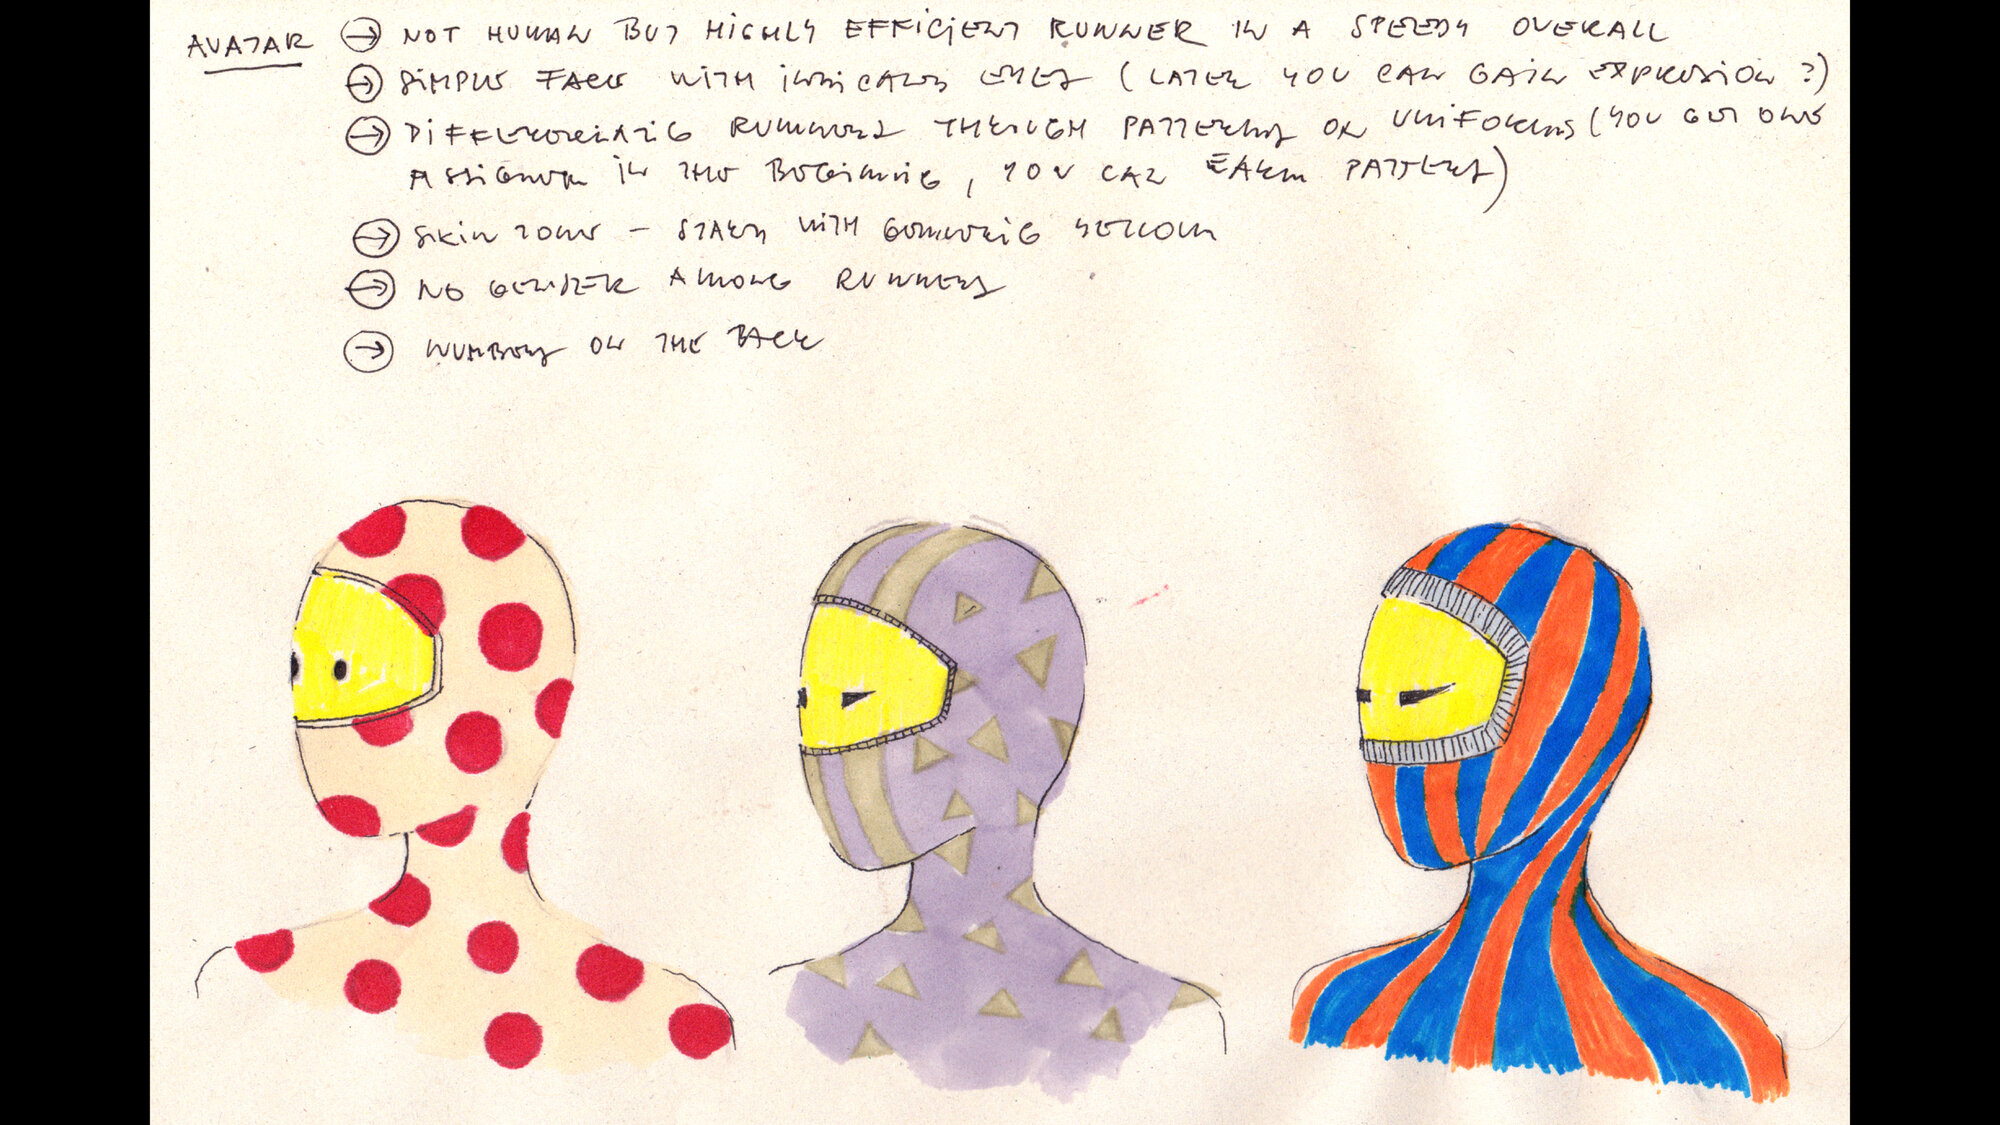 AVATAR → NOT HUMAN BUT HIGHLY EFFICIENT RUNNER IN A SPEEDY OVERALL
→ SIMPLE FACE WITH EYES (LATER YOU CAN GAIN EXPRESSION?)
→ DIFFERENTIATIG RUNNERS THROUGH PATTERNS ON UNIFORMS (YOU GET ONE
ASSIGNED IN THE BEGINNING, YOU CAN EARN PATTERNS)
→ SKIN TONE - START WITH GENERIC YELLOW
→ NO GENDER AMONG RUNNERS
→ NUMBERS ON THE BACK